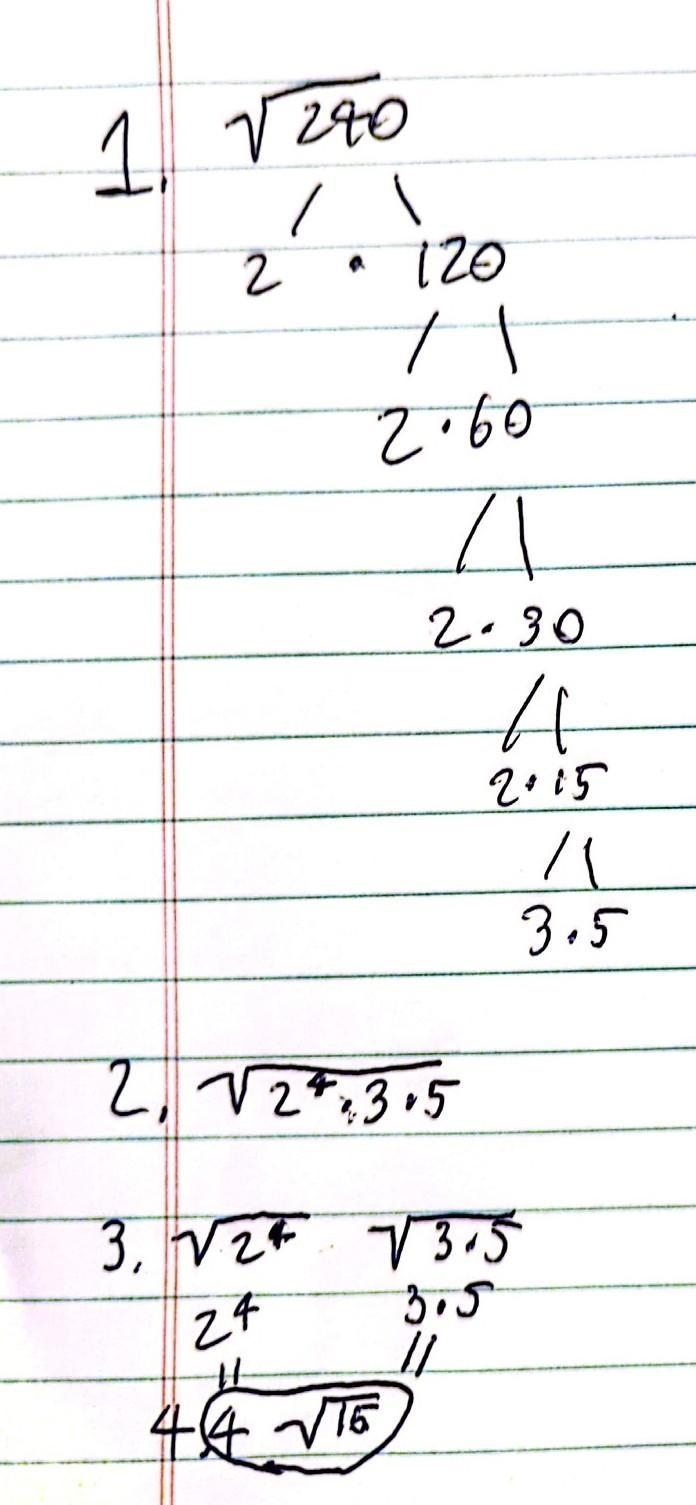 1. √240
2 · 120
2 · 60
2 · 30
2 · 15
3 · 5
2. √2⁴ · 3 · 5
3. √2⁴ √3 · 5
2⁴ 3 · 5
= =
4. 4 √15